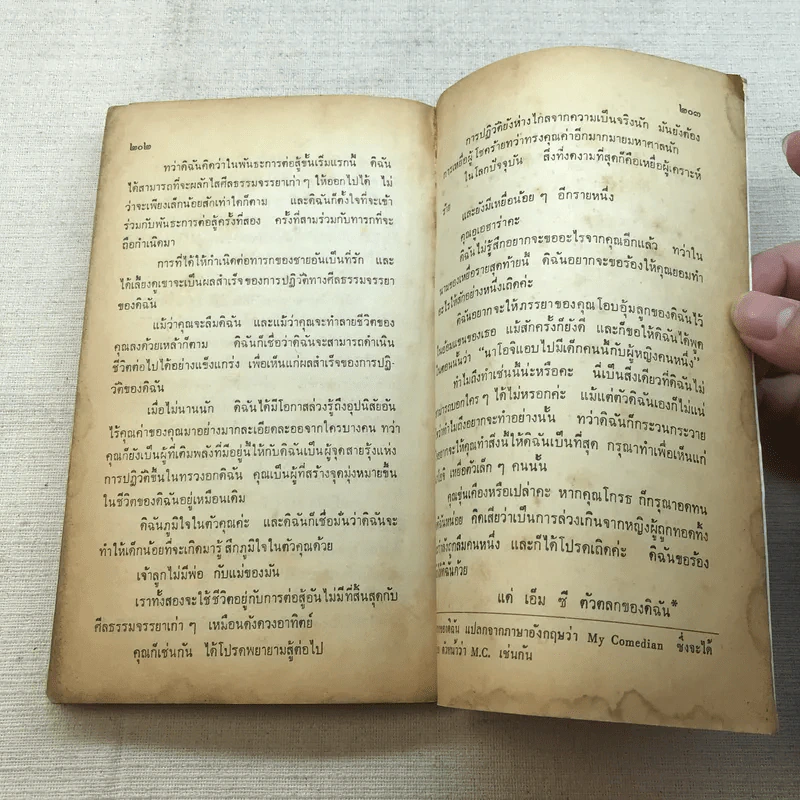 ๒๐๒
ทว่าดิฉันคิดว่าในพันธะการต่อสู้ขั้นเริ่มแรกนี้ ดิฉัน
ได้สามารถที่จะผลักไสศีลธรรมจรรยาเก่า ๆ ให้ออกไปได้ ไม่
ว่าจะเพียงเล็กน้อยสักเท่าใดก็ตาม และดิฉันก็ตั้งใจที่จะเข้า
ร่วมกับพันธะการต่อสู้ครั้งที่สอง ครั้งที่สามร่วมกับทารกที่จะ
ถือกำเนิดมา
การที่ได้ให้กำเนิดต่อทารกของชายอันเป็นที่รัก และ
ได้เลี้ยงดูเขาจะเป็นผลสำเร็จของการปฏิวัติทางศีลธรรมจรรยา
ของดิฉัน
แม้ว่าคุณจะลืมดิฉัน และแม้ว่าคุณจะทำลายชีวิตของ
คุณลงด้วยเหล้าก็ตาม ดิฉันก็เชื่อว่าดิฉันจะสามารถดำเนิน
ชีวิตต่อไปได้อย่างแข็งแกร่ง เพื่อเห็นแก่ผลสำเร็จของการปฏิ-
วัติของดิฉัน
เมื่อไม่นานนัก ดิฉันได้มีโอกาสล่วงรู้ถึงอุปนิสัยอัน
ไร้คุณค่าของคุณมาอย่างมากละเอียดละออจากใครบางคน ทว่า
คุณก็ยังเป็นผู้ที่เติมพลังที่มีอยู่นี้ให้กับดิฉันเป็นผู้จุดสายรุ้งแห่ง
การปฏิวัติขึ้นในทรวงอกดิฉัน คุณเป็นผู้ที่สร้างจุดมุ่งหมายขึ้น
ในชีวิตของดิฉันอยู่เหมือนเดิม
ดิฉันภูมิใจในตัวคุณค่ะ และดิฉันก็เชื่อมั่นว่าดิฉันจะ
ทำให้เด็กน้อยที่จะเกิดมารู้สึกภูมิใจในตัวคุณด้วย
เจ้าลูกไม่มีพ่อ กับแม่ของมัน
เราทั้งสองจะใช้ชีวิตอยู่กับการต่อสู้อันไม่มีที่สิ้นสุดกับ
ศีลธรรมจรรยาเก่า ๆ เหมือนดังดวงอาทิตย์
คุณก็เช่นกัน ได้โปรดพยายามสู้ต่อไป
๒๐๓
การปฏิวัติยังห่างไกลจากความเป็นจริงนัก มันยังต้อง
การเหยื่อผู้โชคร้ายทว่าทรงคุณค่าอีกมากมายมหาศาลนัก
ในโลกปัจจุบัน สิ่งที่งดงามที่สุดก็คือเหยื่อผู้เคราะห์
ร้าย
และยังมีเหยื่อน้อย ๆ อีกรายหนึ่ง
คุณอูเอฮาร่าคะ
ดิฉันไม่รู้สึกอยากจะขออะไรจากคุณอีกแล้ว ทว่าใน
นามของเหยื่อรายสุดท้ายนี้ ดิฉันอยากจะขอร้องให้คุณยอมทำ
อะไรให้สักอย่างหนึ่งเถิดค่ะ
ดิฉันอยากจะให้ภรรยาของคุณโอบอุ้มลูกของดิฉันไว้
ในอ้อมแขนของเธอ แม้สักครั้งก็ยังดี และก็ขอให้ดิฉันได้พูด
ในตอนนั้นว่า “นาโอจิแอบไปมีเด็กคนนี้กับผู้หญิงคนหนึ่ง”
ทำไมถึงทำเช่นนี้น่ะหรือคะ นี่เป็นสิ่งเดียวที่ดิฉันไม่
สามารถบอกใคร ๆ ได้ไม่หรอกค่ะ แม้แต่ตัวดิฉันเองก็ไม่แน่
ว่าทำไมถึงอยากจะทำอย่างนั้น ทว่าดิฉันก็กระวนกระวาย
อยากจะให้คุณทำสิ่งนี้ให้ดิฉันเป็นที่สุด กรุณาทำเพื่อเห็นแก่
เหยื่อตัวเล็ก ๆ คนนั้น
คุณขุ่นเคืองหรือเปล่าคะ หากคุณโกรธ ก็กรุณาอดทน
ดิฉันหน่อย คิดเสียว่าเป็นการล่วงเกินจากหญิงผู้ถูกทอดทิ้ง
กำลังถูกลืมคนหนึ่ง และก็ได้โปรดเถิดค่ะ ดิฉันขอร้อง
ดิฉันด้วย
แด่ เอ็ม ซี ตัวตลกของดิฉัน*
ของดิฉัน แปลกจากภาษาอังกฤษว่า My Comedian ซึ่งจะได้
ตัวหน้าว่า M.C. เช่นกัน